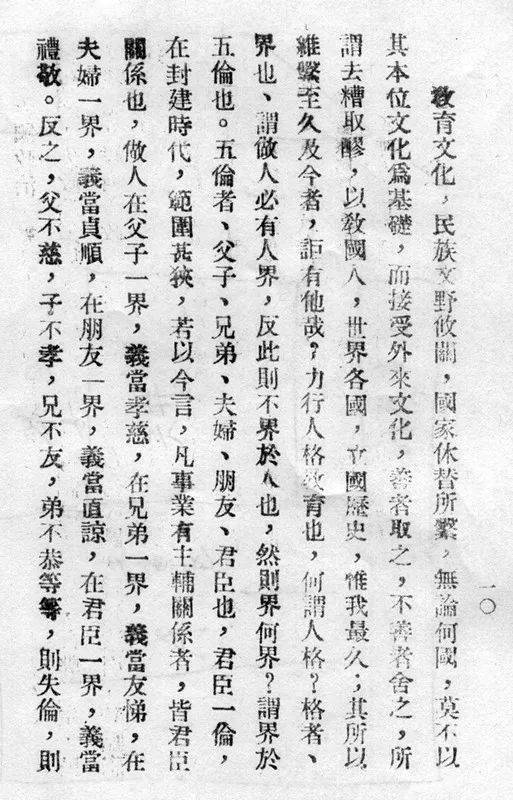 一〇
教育文化，民族文野攸關，國家休替所繫，無論何國，莫不以
其本位文化爲基礎，而接受外來文化，善者取之，不善者舍之，所
謂去糟取醪，以敎國人，世界各國，立國歷史，惟我最久；其所以
維繫至久及今者，詎有他哉？力行人格敎育也，何謂人格？格者、
界也、謂做人必有人界，反此則不界於人也，然則界何界？謂界於
五倫也。五倫者、父子、兄弟、夫婦、朋友、君臣也，君臣一倫，
在封建時代，範圍甚狹，若以今言，凡事業有主輔關係者，皆君臣
關係也，做人在父子一界，義當孝慈，在兄弟一界，義當友悌，在
夫婦一界，義當貞順，在朋友一界，義當直諒，在君臣一界，義當
禮敬。反之，父不慈，子不孝，兄不友，弟不恭等等，則失倫，則